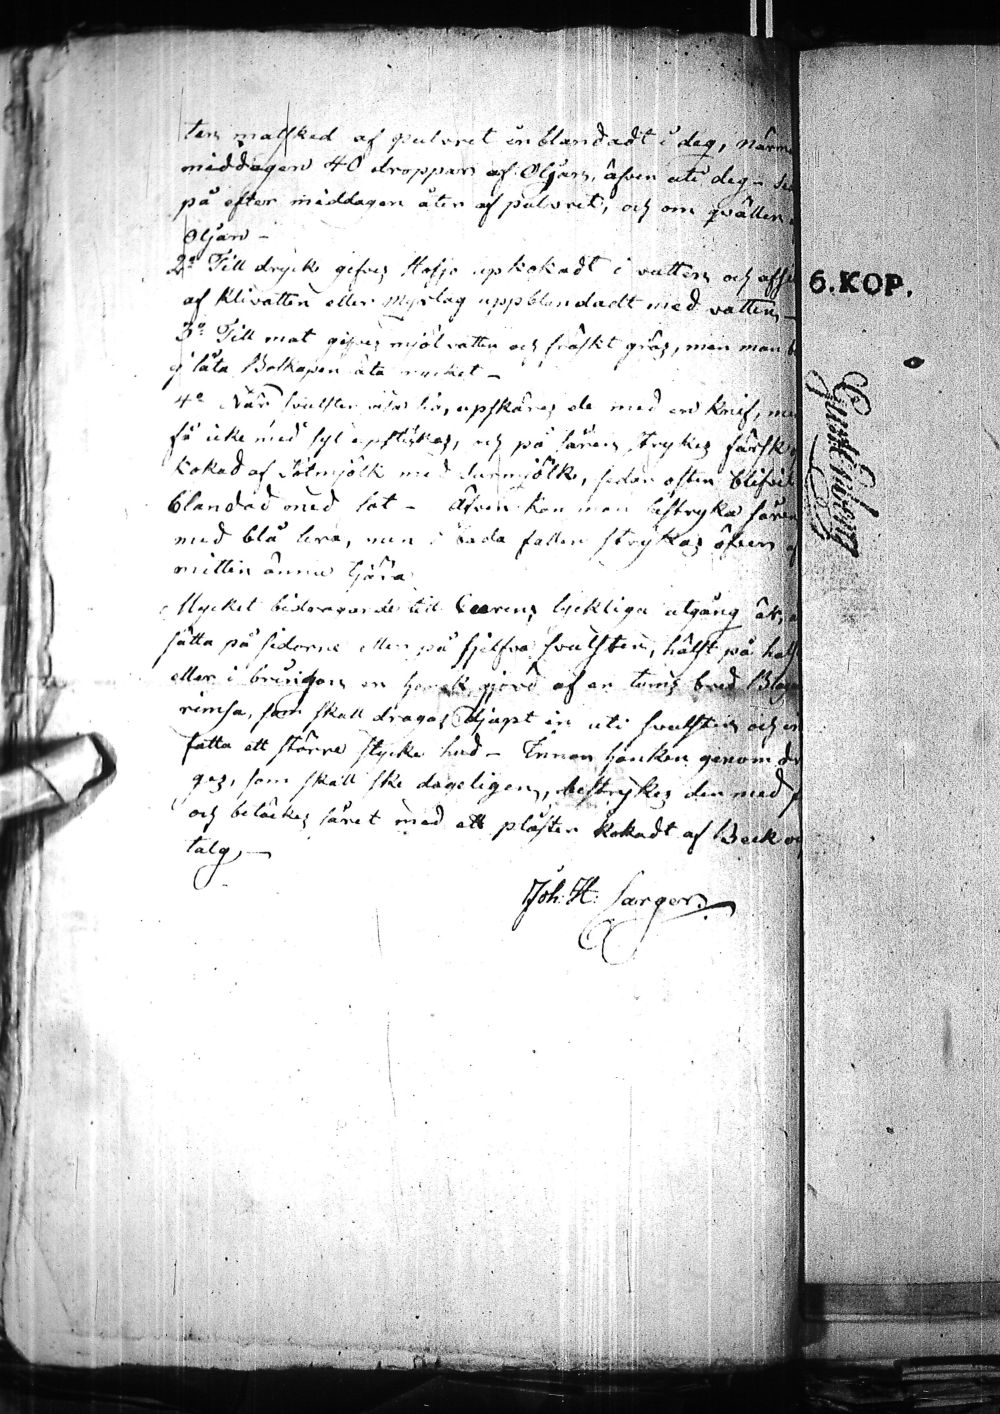 ten matsked af pulvret inblandadt i deg, närma
middagen 40 droppar af Oljan, äfven uti deg - se
på efter middagen åter af pulvret, och om qvällen
Oljan -
2o Till dryck gifves Hafje upkokadt i vatten och
af Klivatten eller Myslag uppblandadt med vatten -
3o Till mat gifves mjölvatten och friskt gräs, men man
ej låta Boskapen äta mycket -
4o När svulster upskäres de med en Knif, men
få icke med syl upstickas, och på såren strykes färsk
kokad af Sötmjölk med Surmjölk, sedan osten blifvit
blandad med sot - Äfven kan man bestryka såren
med blå lera, men i båda fallen strykes öfver
mitten ännu tjära
Mycket bidragande till Curens lyckliga utgång är, a
sätta på sidorne eller på sjelfva svulsten, hälst på hals
eller i bringan en hank gjord af en tums bred
rimsa, som skall dragas djupt in uti svulsten och
fatta ett större stycke hud - Innan hanken genom dr
ges, som skall ske dageligen, bestrykes den med
och betäckes såret med ett plåster kokadt af Beck oc
talg. -
Joh: H:
6. KOP.